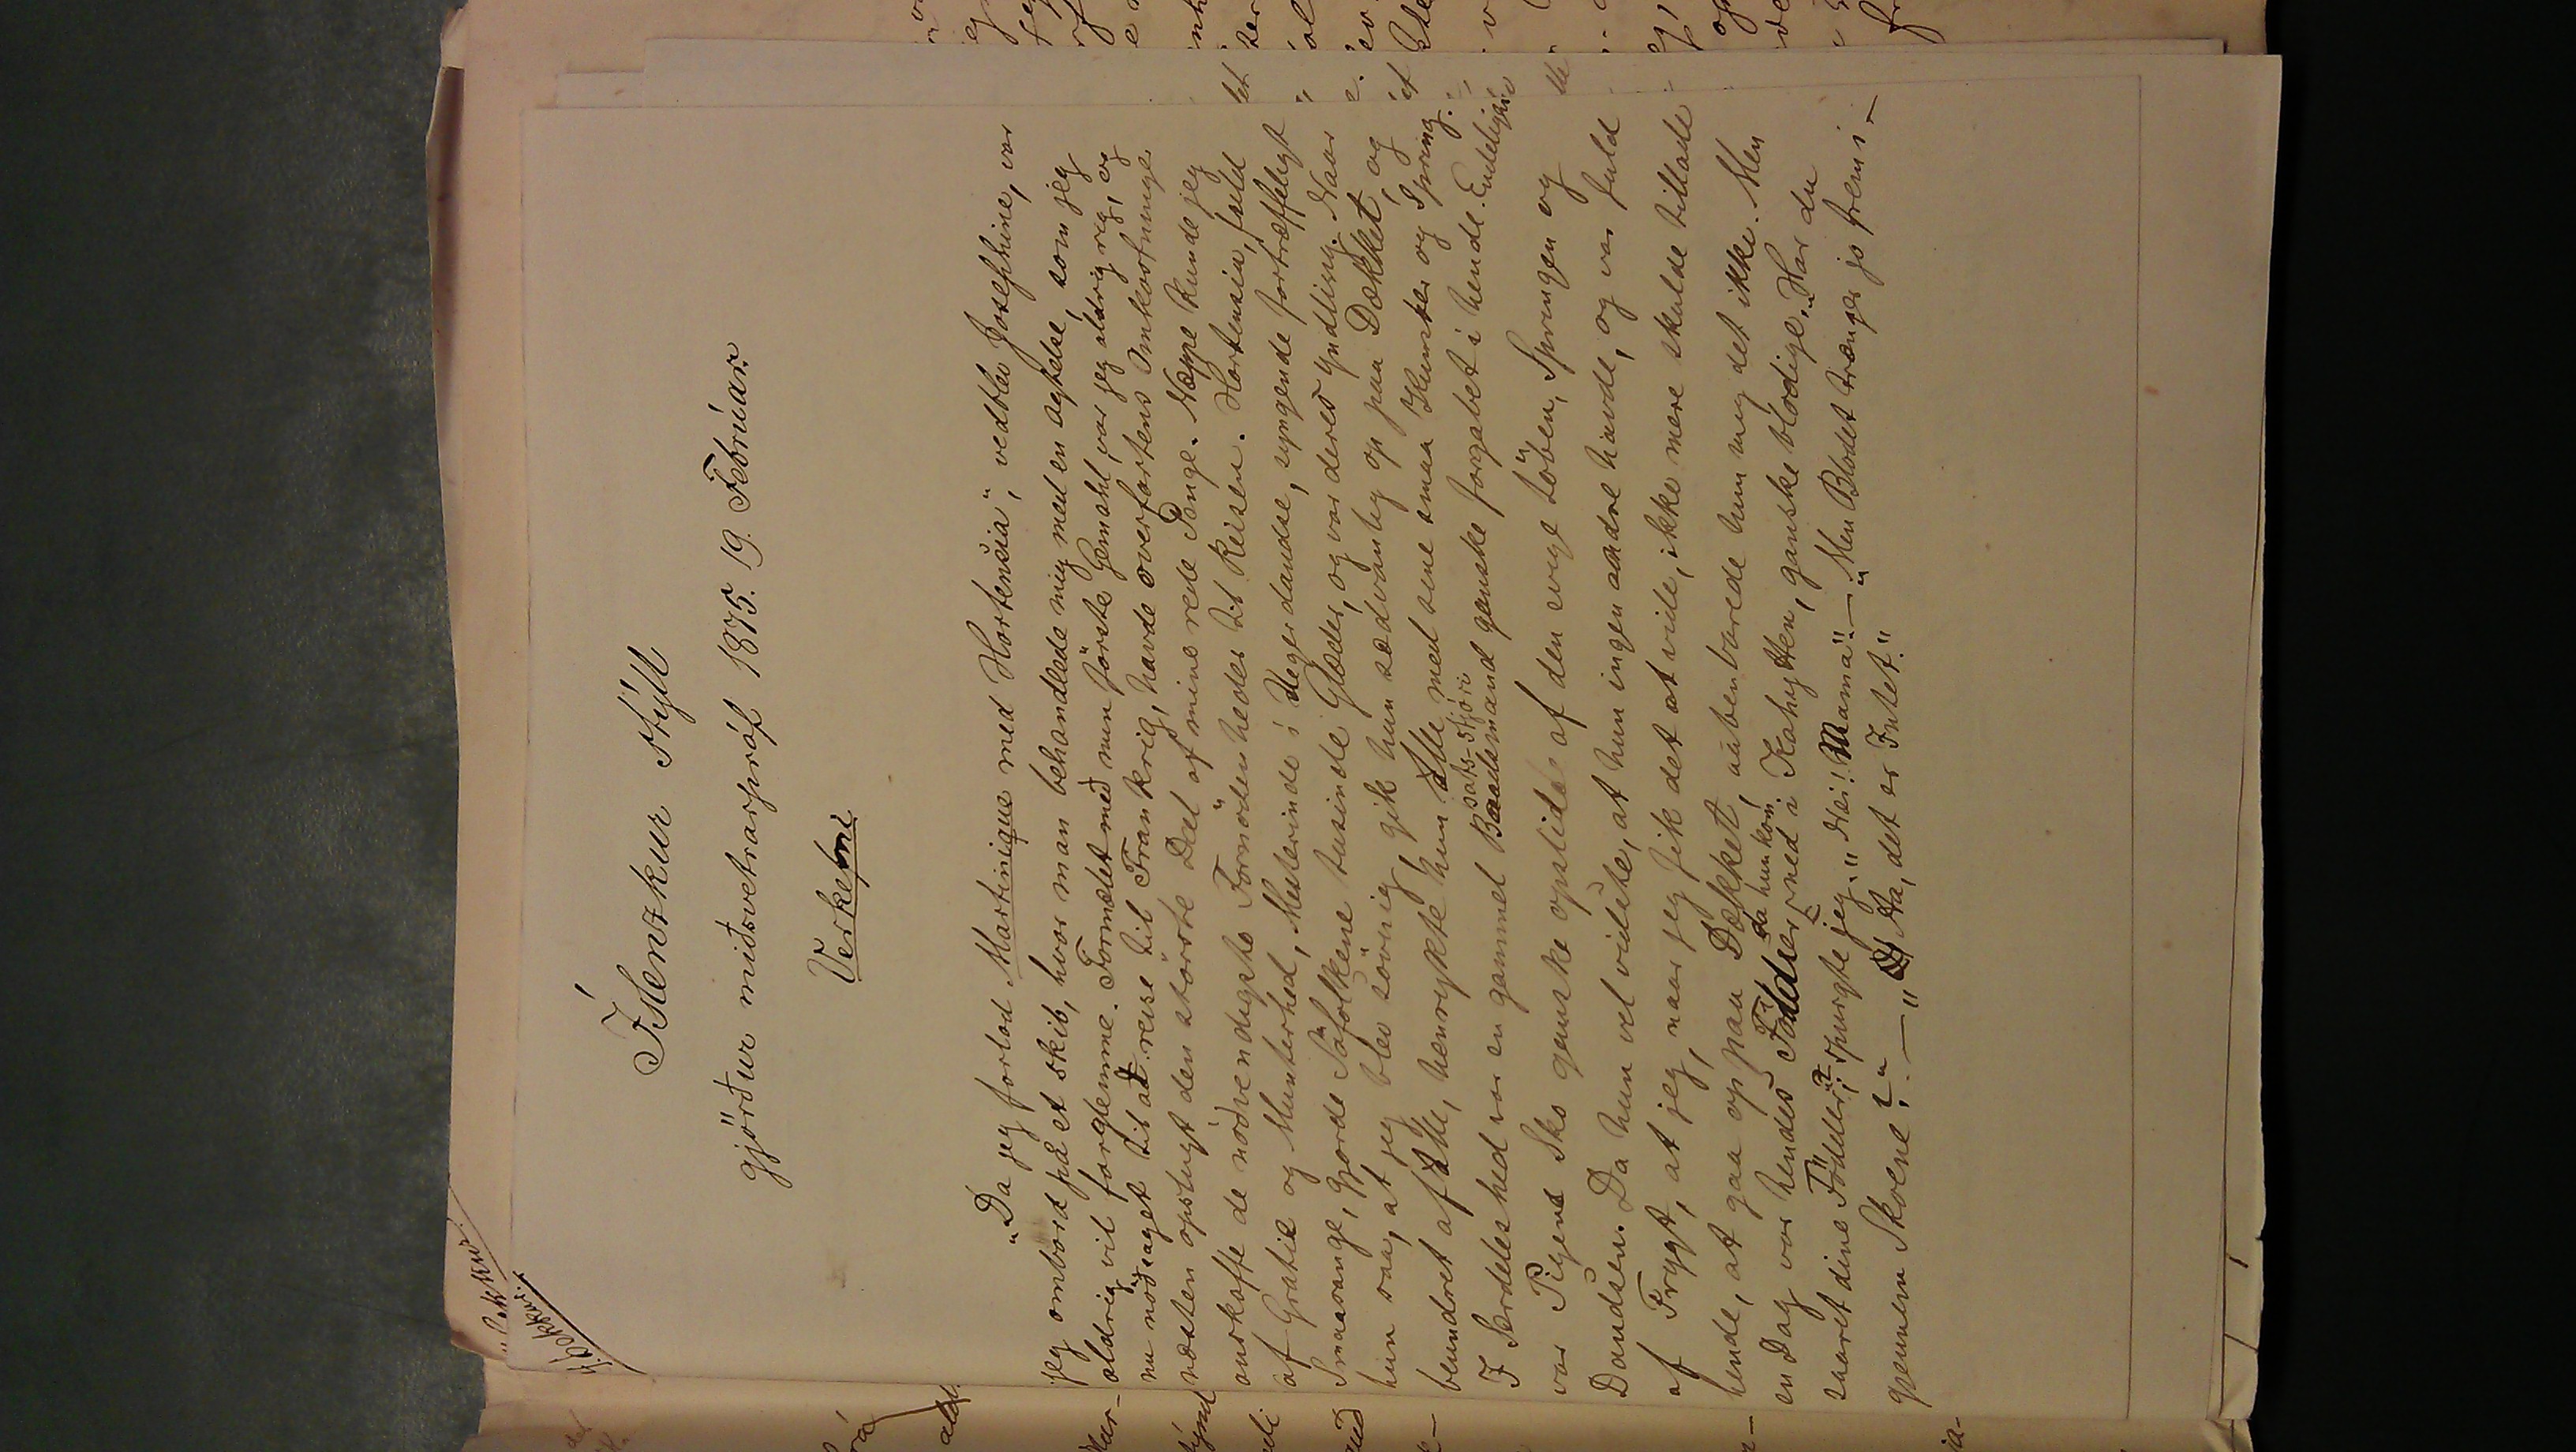 2. bekkur.
2. bekkur.
Íslenzkur stýll
gjörður miðsvetrarpróf 1875. 19. Febrúar.
Verkefni
„Da jeg forlod Martinique med Hortensia“, vedblev Josephine, var
jeg ombord på et skib, hvor man behandlede mig med en agtelse, som jeg
aldrig vil forglemme. Formælet með min förste Gemahl, var jeg aldrig rig, og
nu nödsaget til at reise til Frankrig, havde overfartens Omkostninger
næsten opslugt den störste Deel af mine rede Penge. Neppe kunde jeg
anskaffe de nödvendigste Fornödenheder til Reisen. Hortensia, fuld
af Gratie og Munterhed, Mesterinde i Neger dandse, syngende fortræffeligt
Smaasange, gjorde Säfolkene tusinde Glæder, og var deres Yndling. Naar
hun saa, at jeg blev sövnig, gik hun sædvanlig op paa Dækket, og
beundret af Alle, henrykte hun Alle med sine smaa Kunster og Spring.
I Særdeleshed var en gammel Baadsmand ganske forgabet i hende. Endelig
báts-stjóri
var Pigens Sko ganske opslidte af den evige Löben, Springen og
Dandsen. Da hun vel vidste, at hun ingen andre havde, og var fuld
af Frygt, at jeg, naar jeg fik det at vide, ikke mere skulde tillade
hende, at gaa op paa Dækket, aabenbarede hun mig det ikke. Men
en Dag var hendes Födder, da hun kom ned i Kahytten, ganske blodige. „Har du
saaret dine Födder“? spurgte jeg. „Nei! Mama“. — „Men Blodet trænger jo frem i-
gennem Skoene?“ — „Aa, det er Intet.“